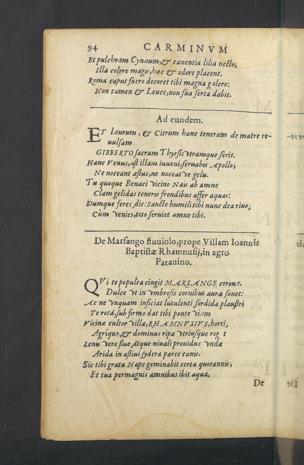 94 CARMINVM
Et pulchram Cynaum, & canentia lilia necto,
Illa colore mago, hac & odore placent.
Roma caput sacro decoret tibi magna galero:
Non tamen & Leuce, non sua serta dabit.
Ad eundem.
ET laurum, & Citrum hanc teneram de matre re-
uulsam
GIBERTO sacram Thyrsis utramque serit.
Hanc Venus, ast illam iuueni seruabis Apollo,
Ne noceant æstus, ne noceat ve gelu.
Tu quoque Benaci vicino Nais ab amne
Clam gelidas teneris frondibus affer aquas.
Dumque feres, dic: Sancte humili tibi nunc dea riuo,
Cùm venies, toto seruiet amne tibi.
De Marsango fluuiolo, prope Villam Ioannis
Baptistæ Rhamnusij, in agro
Patauino.
QVi te populea cingit MARSANGE corona,
Dulce ut in umbreis cornibus aura sonet:
Ac ne unquam inficiat lutulenti sordida plaustri
Te rota, sub firmo dat tibi ponte viam
Vicinæ cultor villæ, RHAMNVSIVS, horti,
Agrique, & dominus ripæ utriusque
Lenis vere flue, atque niuali prouidus vnda
Arida in æstiui sydera parce canis.
Sic tibi grata Nape geminabit certa quotannis,
Et tua permagnis amnibus ibit aqua.
De